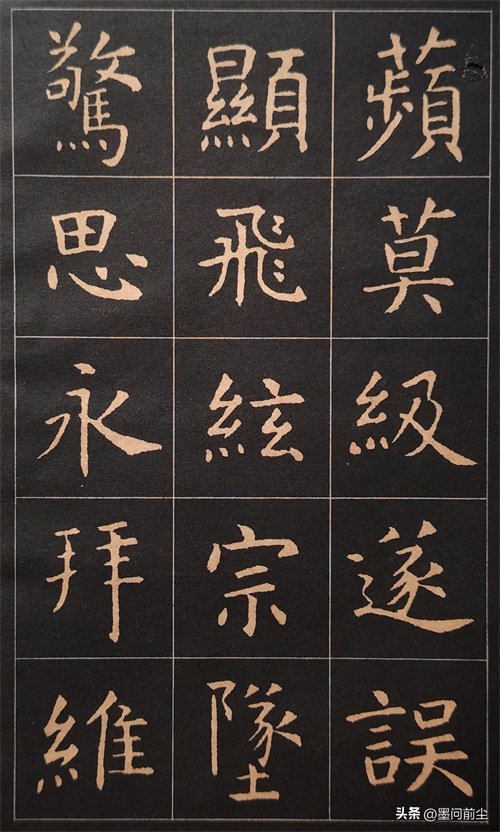 蘋莫級遂誤
顯飛絃宗墜
驚思永拜維
头条 @墨问前尘